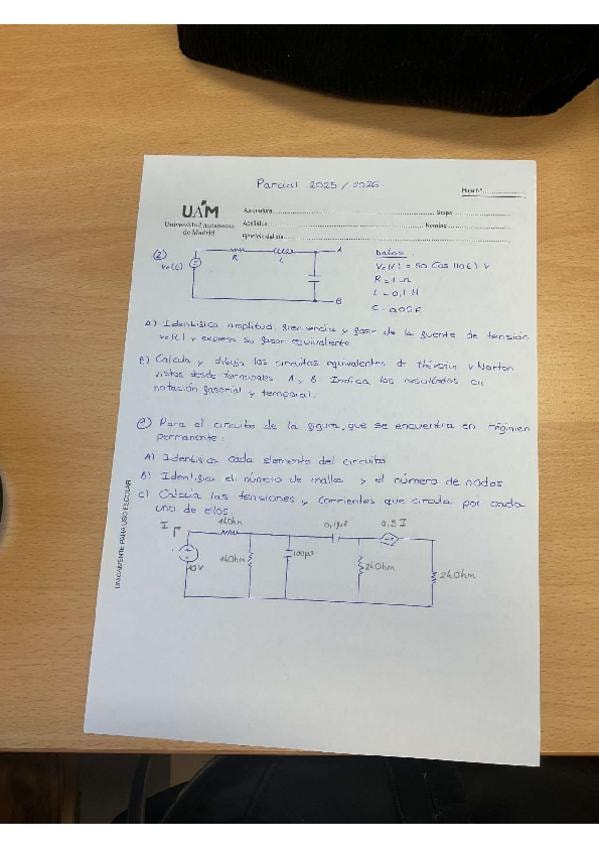 Parcial 2025/2026
Hoja Nº
UAM
Universidad Autónoma
de Madrid
Asignatura
Grupo
Apellidos
Nombre
Ejercicio del día
②
Vc(t)
R
L
A
B
Datos
Vc(t) = 50 Cos (10t) V
R = 1 Ω
L = 0,1 H
C = 0,02 F
A) Identifica amplitud, frecuencia y fasor de la fuente de tensión
Vc(t) y expresa su fasor equivalente
B) Calcula y dibuja los circuitos equivalentes de Thévenin y Norton
vistos desde terminales A y B. Indica los resultados en
notación fasorial y temporal.
Para el circuito de la figura, que se encuentra en régimen
permanente:
A) Identifica cada elemento del circuito
B) Identifica el número de mallas y el número de nodos
C) Calcula las tensiones y corrientes que circula por cada
uno de ellos.
I
1kOhm
0,1µF
0.5I
10V
1kOhm
100µF
2kOhm
2kOhm
ÚNICAMENTE PARA USO ESCOLAR